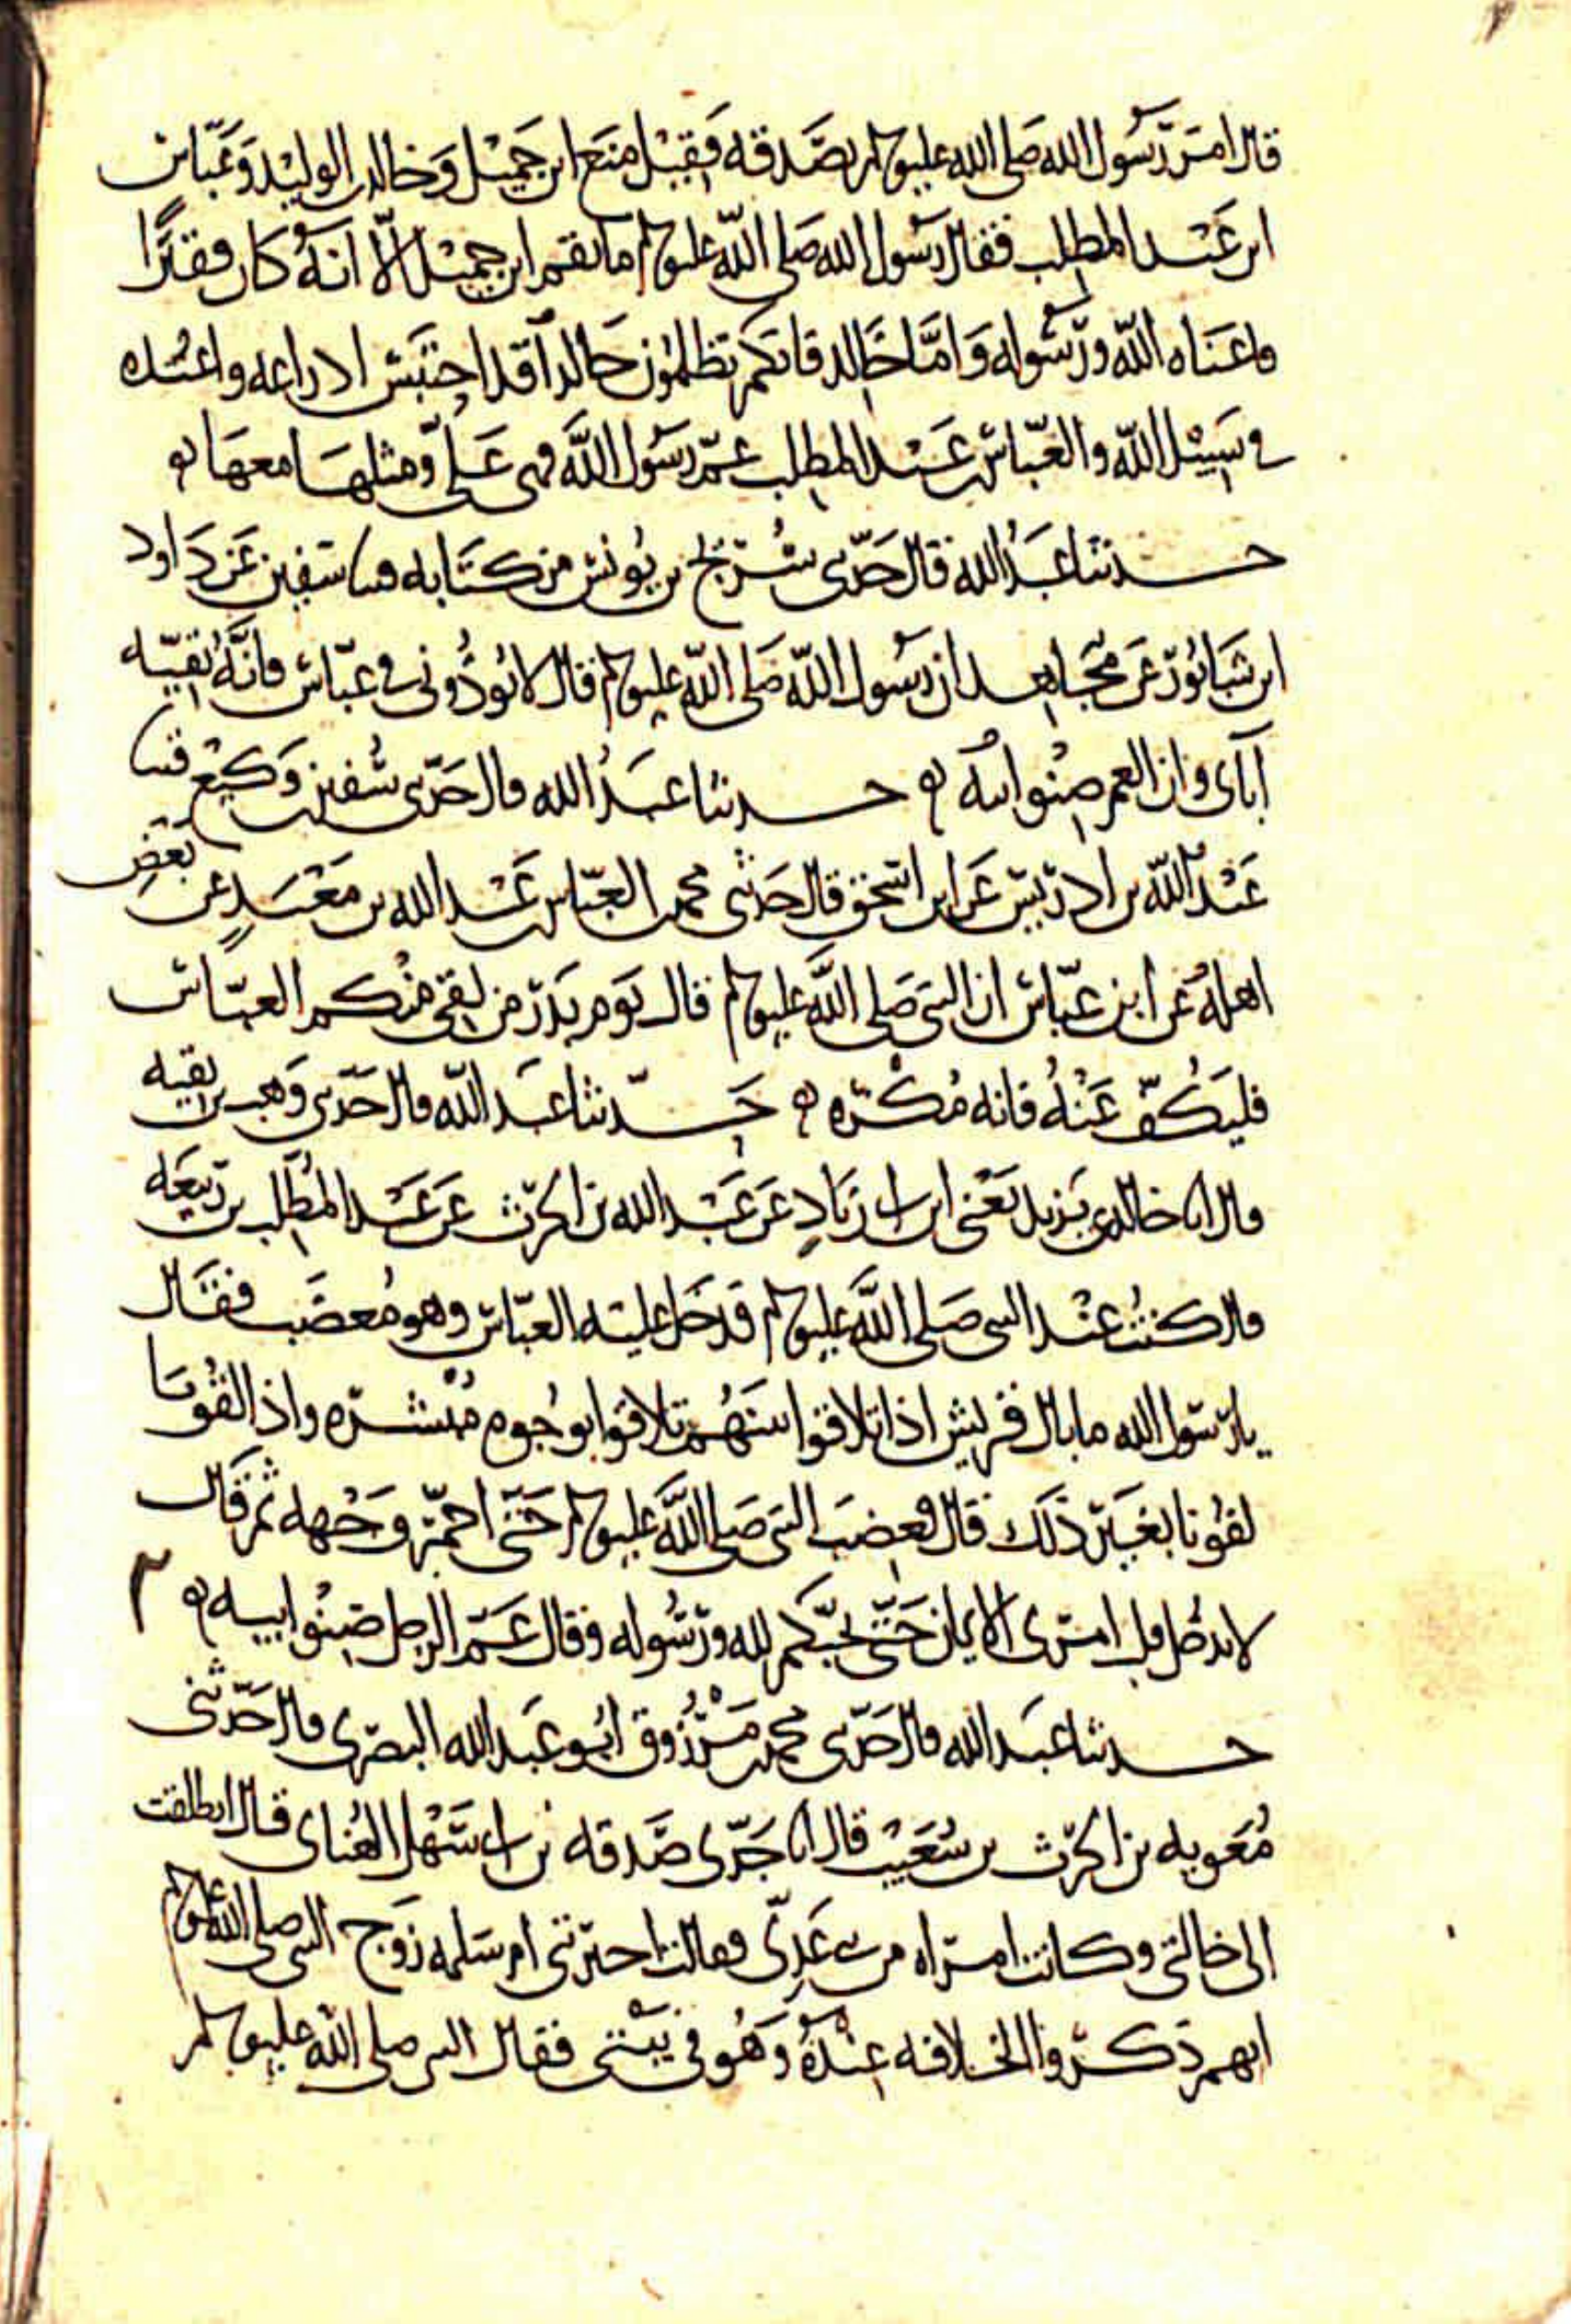 قال امر رسول الله صلى الله عليه وسلم بصدقه فقيل منع ابن جميل وخالد بن الوليد وعباس
ابن عبد المطلب فقال رسول الله صلى الله عليه وسلم ما نقم ابن جميل الا انه كان فقيرا
فاغناه الله ورسوله واما خالد فانكم تظلمون خالدا قد احتبس ادراعه واعتده
في سبيل الله والعباس بن عبد المطلب عم رسول الله فهي علي ومثلها معها
حدثنا عبد الله قال حدثني سريج بن يونس من كتابه قثنا سفين عن داود
ابن شابور عن مجاهد ان رسول الله صلى الله عليه وسلم قال لا توذوني في عباس فانه بقيه
آباي وان العم صنو ابيه حدثنا عبد الله قال حدثني سفين بن وكيع قثنا
عبد الله بن ادريس عن ابن اسحق قال حدثني محمد بن العباس بن عبد الله بن معبد عن بعض
اهله عن ابن عباس ان النبي صلى الله عليه وسلم قال يوم بدر من لقي منكم العباس
فليكف عنه فانه مكره حدثنا عبد الله قال حدثني وهب بن بقيه
قال انا خالد عن يزيد يعني ابن ابي زياد عن عبد الله بن الحرث عن عبد المطلب بن ربيعه
قال كنت عند النبي صلى الله عليه وسلم فدخل عليه العباس وهو مغضب فقال
يا رسول الله ما بال قريش اذا تلاقوا بينهم تلاقوا بوجوه مبشره واذا لقونا
لقونا بغير ذلك قال فغضب النبي صلى الله عليه وسلم حتى احمر وجهه ثم قال
لا يدخل قلب امرى الايمان حتى يحبكم لله ورسوله وقال عم الرجل صنو ابيه
حدثنا عبد الله قال حدثني محمد بن مرزوق ابو عبد الله البصري قال حدثني
معويه بن الحرث بن شعيب قال انا جدي صدقه بن ابي سهل الهناي قال انطلقت
الى خالتي وكانت امراه من بني عدي فقالت اخبرتني ام سلمه زوج النبي صلى الله عليه وسلم
انهم ذكروا الخلافه عنده وهو في بيتي فقال النبي صلى الله عليه وسلم